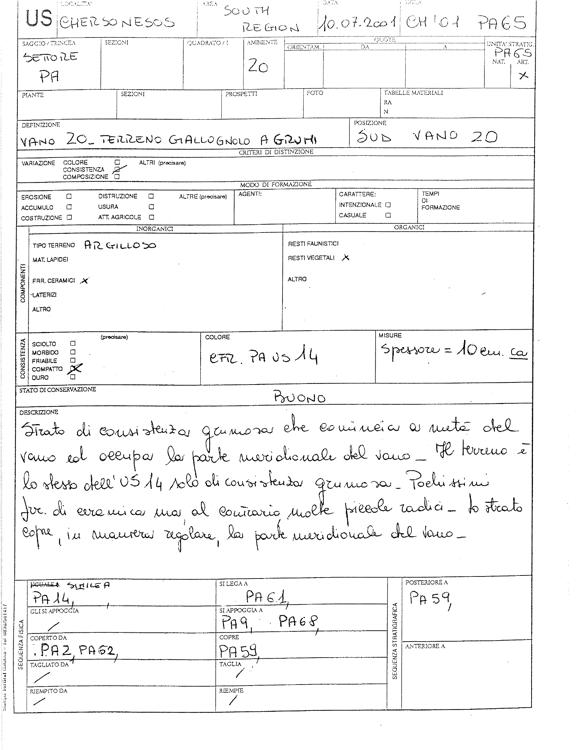 US
LOCALITA'
CHERSONESOS
AREA
SOUTH
REGION
DATA
10.07.2001
SIGLA
CH'01 PA65
SAGGIO / TRINCEA
SETTORE
PA
SEZIONI
QUADRATO /
AMBIENTE
20
QUOTE
ORIENTAM.
DA
A
UNITA' STRATIG.
PA65
NAT. ART.
X
PIANTE
SEZIONI
PROSPETTI
FOTO
TABELLE MATERIALI
RA
N
DEFINIZIONE
VANO 20_ TERRENO GIALLOGNOLO A GRUMI
POSIZIONE
SUD VANO 20
CRITERI DI DISTINZIONE
VARIAZIONE COLORE ALTRI (precisare)
CONSISTENZA
COMPOSIZIONE
MODO DI FORMAZIONE
EROSIONE DISTRUZIONE ALTRE (precisare)
ACCUMULO USURA
COSTRUZIONE ATT. AGRICOLE
AGENTI:
CARATTERE:
INTENZIONALE
CASUALE
TEMPI
DI
FORMAZIONE
INORGANICI
ORGANICI
COMPONENTI
TIPO TERRENO ARGILLOSO
MAT. LAPIDEI
FRR. CERAMICI X
LATERIZI
ALTRO
RESTI FAUNISTICI
RESTI VEGETALI X
ALTRO
CONSISTENZA
(precisare)
SCIOLTO
MORBIDO
FRIABILE
COMPATTO X
DURO
COLORE
CFR. PA US 14
MISURE
Spessore = 10 cm. ca
STATO DI CONSERVAZIONE
BUONO
DESCRIZIONE
Strato di consistenza grumosa che comincia a metà del
vano ed occupa la parte meridionale del vano_ Il terreno è
lo stesso dell'US 14 solo di consistenza grumosa_ Pochissimi
frr. di ceramica ma, al contrario molte piccole radici_ Lo strato
copre, in maniera regolare, la parte meridionale del vano_
SEQUENZA FISICA
UGUALE A SIMILE A
PA14,
SI LEGA A
PA61,
GLI SI APPOGGIA
/
SI APPOGGIA A
PA9, PA68,
COPERTO DA
PA2, PA62,
COPRE
PA59,
TAGLIATO DA
/
TAGLIA
/
RIEMPITO DA
/
RIEMPIE
/
SEQUENZA STRATIGRAFICA
POSTERIORE A
PA59,
ANTERIORE A